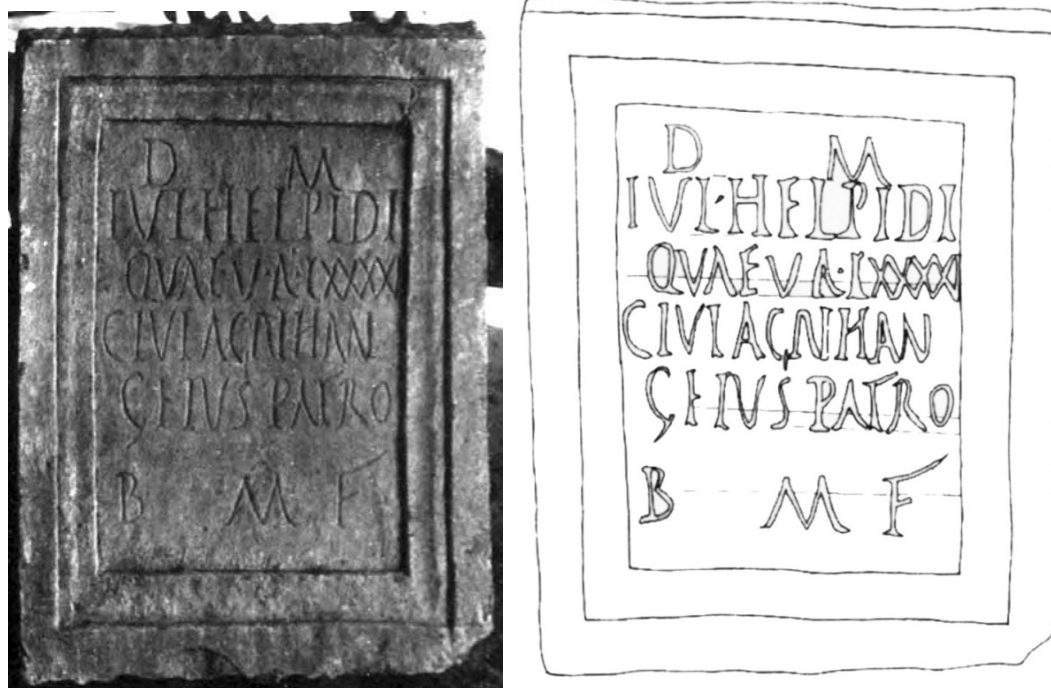 D M
IVL·HELPIDI
QVAE V·A·LXXXX
C IVL AGNIHAN
GEIVS PATRO
B M F
D M
IVL·HELPIDI
QVAE V A·LXXXX
C IVL AGNIHAN
GEIVS PATRO
B M F